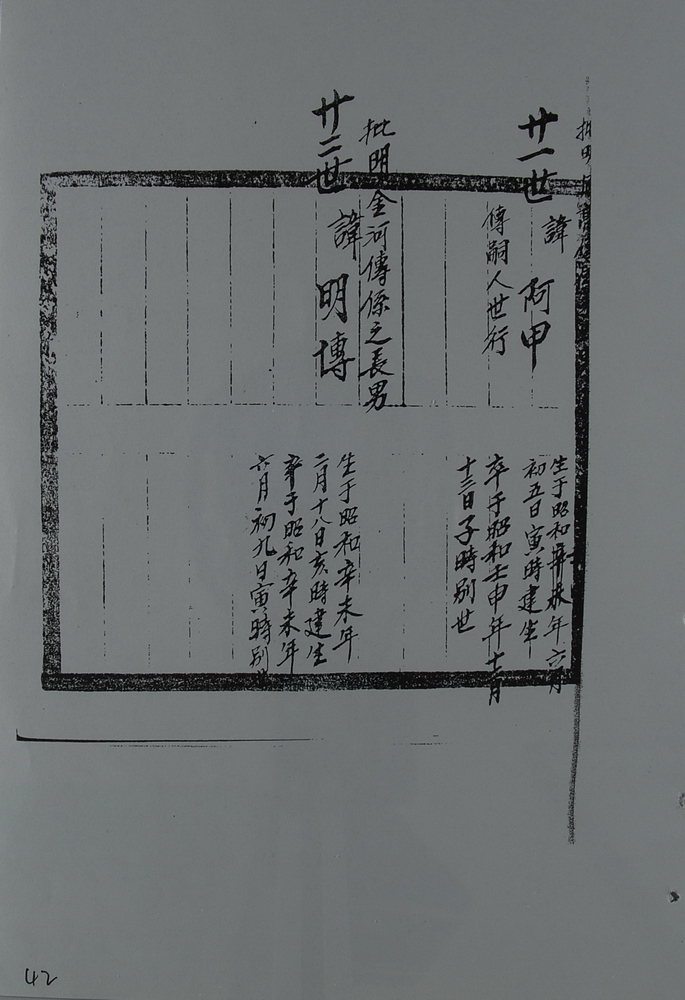 批明
廿一世 諱 阿甲
傳嗣人世行
生于昭和辛未年六月
初五日寅時建生
卒于昭和壬申年十二月
十三日子時別世
批明金河傳係之長男
廿二世 諱 明博
生于昭和辛未年
二月十八日亥時建生
卒于昭和辛未年
六月初九日寅時別
42